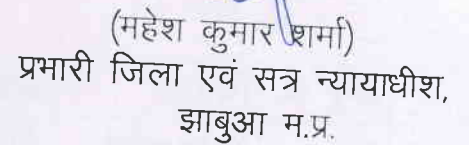 (महेश कुमार शर्मा)
प्रभारी जिला एवं सत्र न्यायाधीश,
झाबुआ म.प्र.